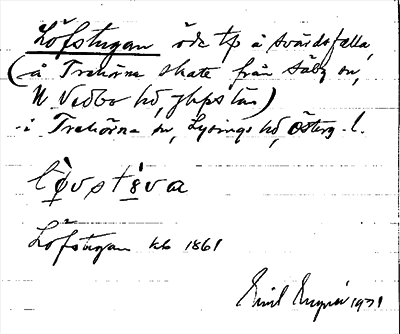 Löfstugan öde tp å Svärdsfälla,
(å Trehörna skate från Säby sn,
N Vedbo hd, Jkps län)
i Trehörna sn, Lysings hd, Österg. l.
Löfstugan kb 1861
Emil 1971